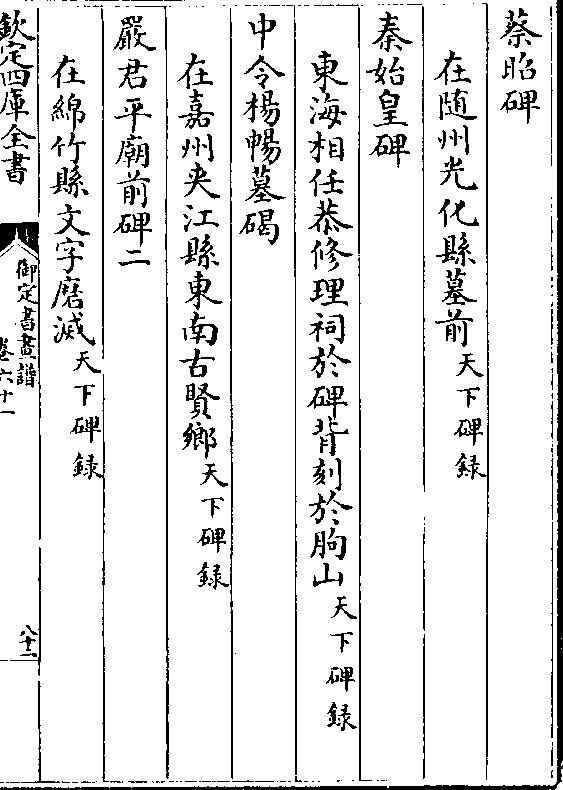 蔡昭碑
在随州光化縣墓前天下碑録
秦始皇碑
東海相任恭修理祠於碑背刻於朐山天下碑録
中令楊暢墓碣
在嘉州夹江縣東南古賢鄉天下碑録
嚴君平廟前碑二
在綿竹縣文字磨滅天下碑録
欽定四庫全書
御定書畫譜
卷六十一